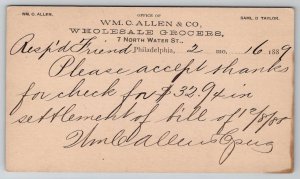 WM. C. ALLEN. OFFICE OF SAML. D TAYLOR.
WM. C. ALLEN & CO.,
WHOLESALE GROCERS,
7 NORTH WATER ST.,
Resp'd Friend Philadelphia, 2 mo. 16 1889
Please accept thanks
for check for $32.94 in
settlement of bill of 12/8/88
Wm C Allen &